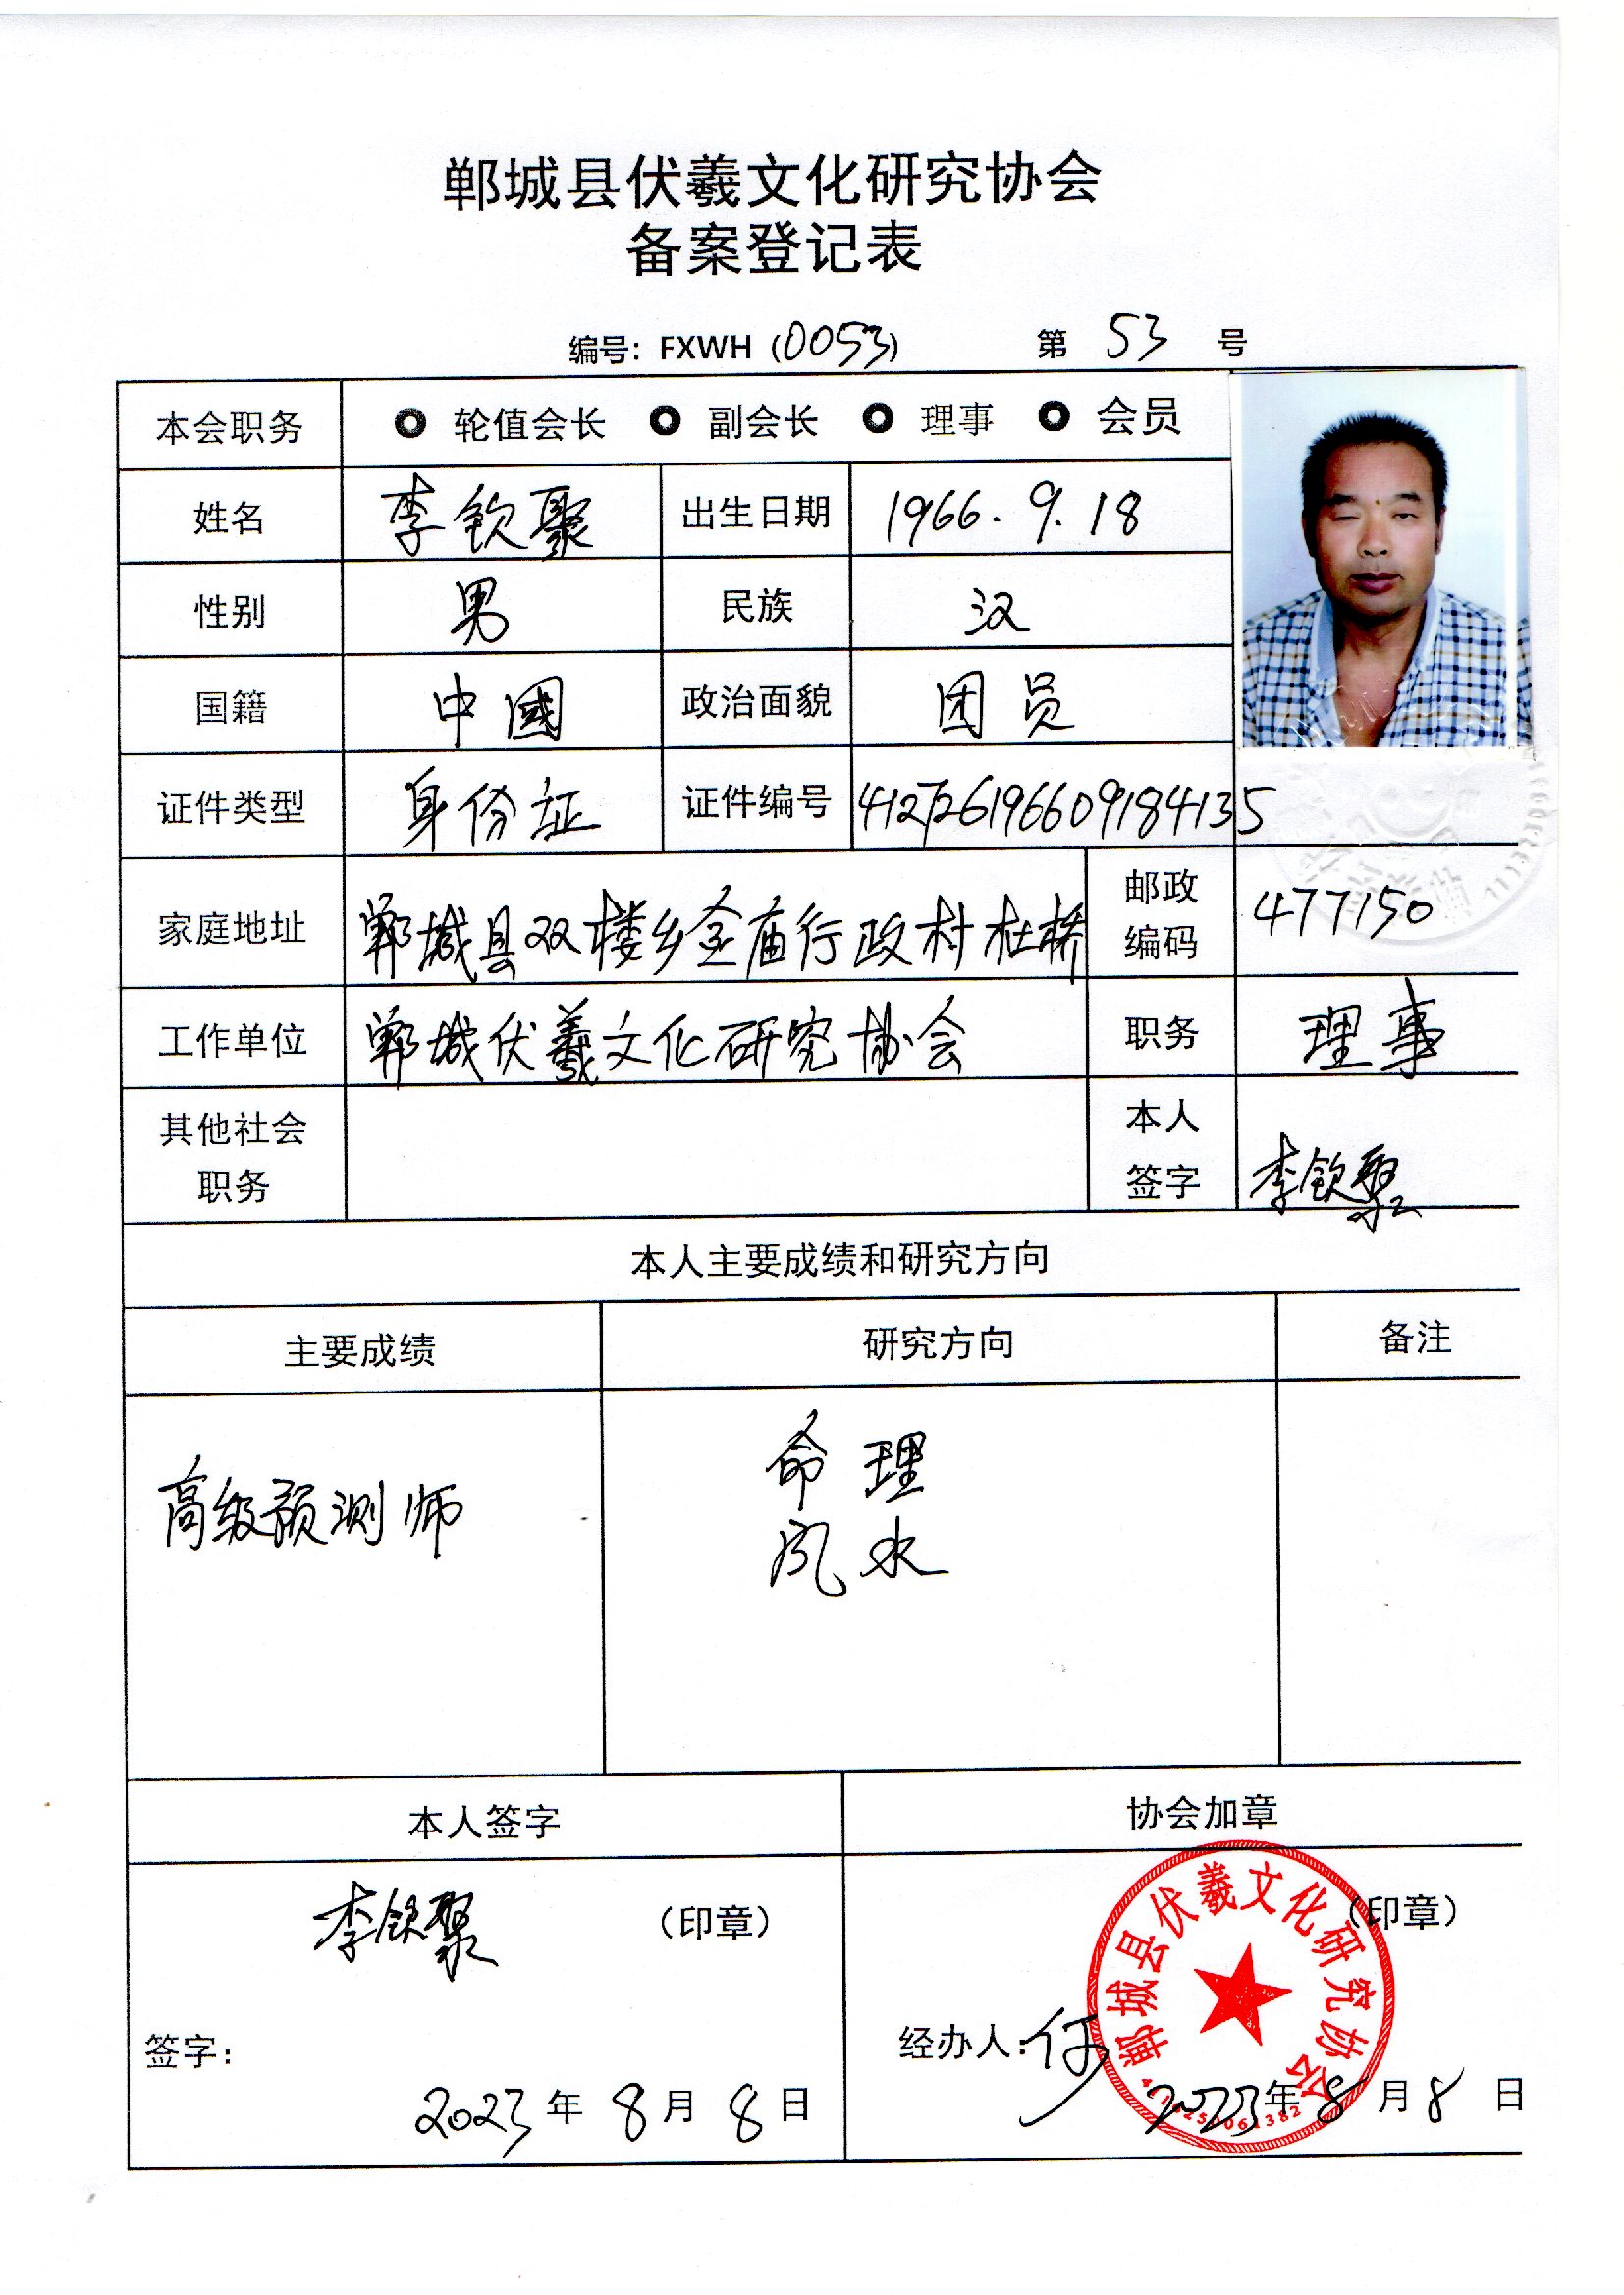 郸城县伏羲文化研究协会
备案登记表
编号：FXWH（0053） 第 53 号
本会职务 轮值会长 副会长 理事 会员
姓名 李钦聚 出生日期 1966.9.18
性别 男 民族 汉
国籍 中國 政治面貌 团员
证件类型 身份证 证件编号 412726196609184135
家庭地址 郸城县双楼乡金庙行政村杜桥 邮政编码 477150
工作单位 郸城伏羲文化研究协会 职务 理事
其他社会职务 本人签字 李钦聚
本人主要成绩和研究方向
主要成绩 研究方向 备注
高级预测师 命理
风水
本人签字 协会加章
李钦聚 （印章） （印章）
郸城县伏羲文化研究协会
签字： 经办人：何
2023年8月8日 2023年8月8日